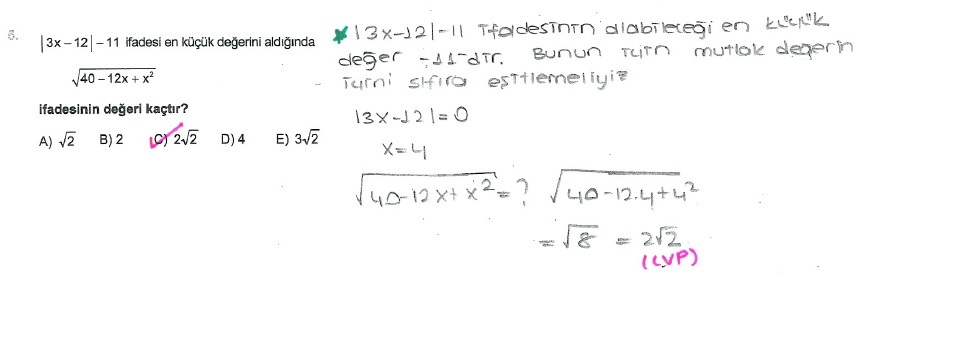 5.
|3x – 12| – 11 ifadesi en küçük değerini aldığında
√(40 – 12x + x²)
ifadesinin değeri kaçtır?
A) √2 B) 2 C) 2√2 D) 4 E) 3√2
|3x-12|-11 ifadesinin alabileceği en küçük
değer -11'dir. Bunun için mutlak değerin
içini sıfıra eşitlemeliyiz
|3x-12|=0
x=4
√(40-12x+x²)=? √(40-12.4+4²
=√8 = 2√2
(CVP)